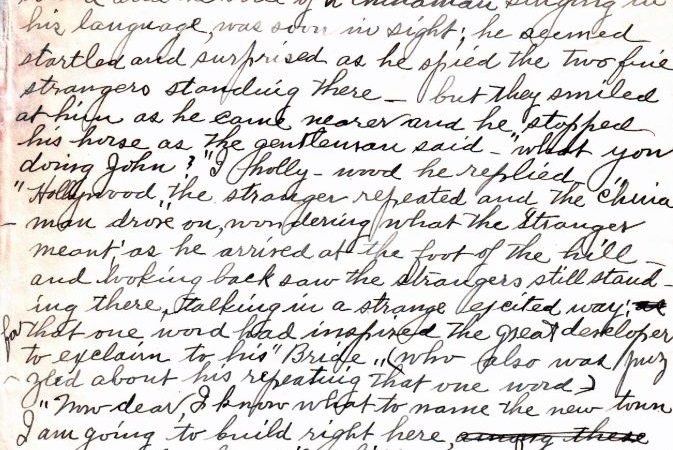 a Chinaman singing in
his language, was soon in sight; he seemed
startled and surprised as he spied the two fine
strangers standing there — but they smiled
at him as he came nearer and he stopped
his horse as the gentleman said — "what you
doing John?" "I holly - wood he replied
"Hollywood", the stranger repeated and the "China
- man drove on, wondering what the Stranger
meant, as he arrived at the foot of the hill —
and looking back saw the strangers still stand-
ing there, talking in a strange excited way;
for that one word had inspired the great developer
to exclaim to his "Bride", (who also was puz
- zled about his repeating that one word)
"Now dear, I know what to name the new town
I am going to build right here, among these